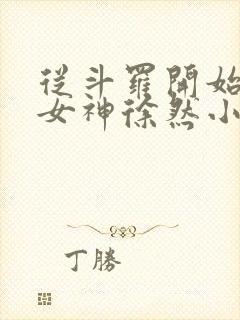 從斗羅開始
女神徐然小
丁勝